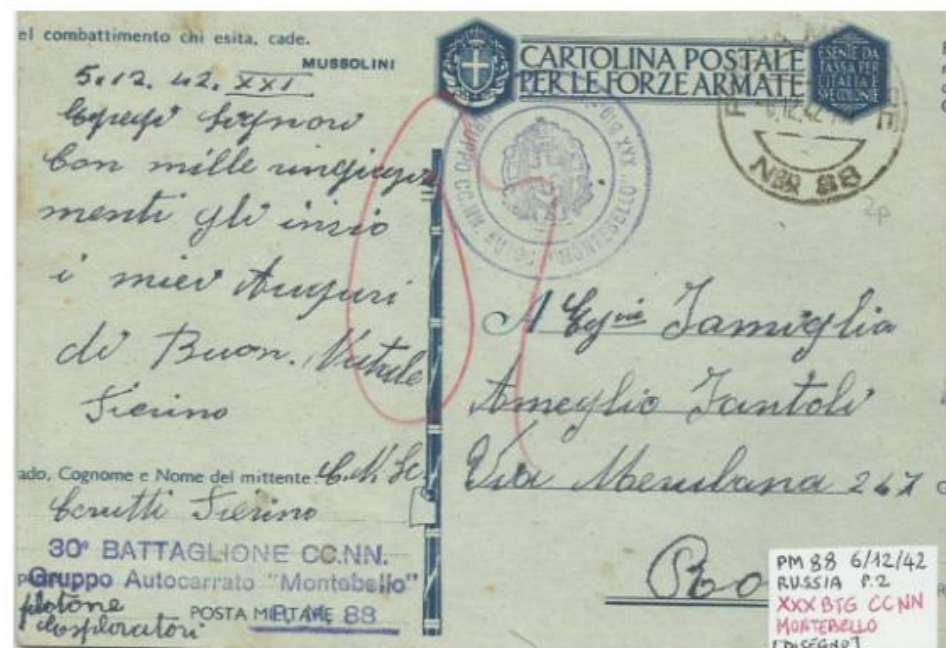 el combattimento chi esita, cade.
MUSSOLINI
5.12.42. XXI
Signori
con mille ringrazia
menti gli invio
i miei Auguri
di Buon. Natale
Pierino
ado, Cognome e Nome del mittente. C.N. Sc
Cerutti Pierino
30° BATTAGLIONE CC.NN.
Gruppo Autocarrato "Montebello"
plotone
POSTA MILITARE 88
esploratori
CARTOLINA POSTALE
PER LE FORZE ARMATE
ESENTE DA
TASSA PER
L'ITALIA E
SUE COLONIE
GRUPPO CC.NN. "MONTEBELLO" XXX
6.12.42
NOR 88
2P
A Famiglia
Ameglio
Via Merulana 247
Ro
PM 88 6/12/42
RUSSIA P.2
XXX BTG CCNN
MONTEBELLO
[DISEGNO]